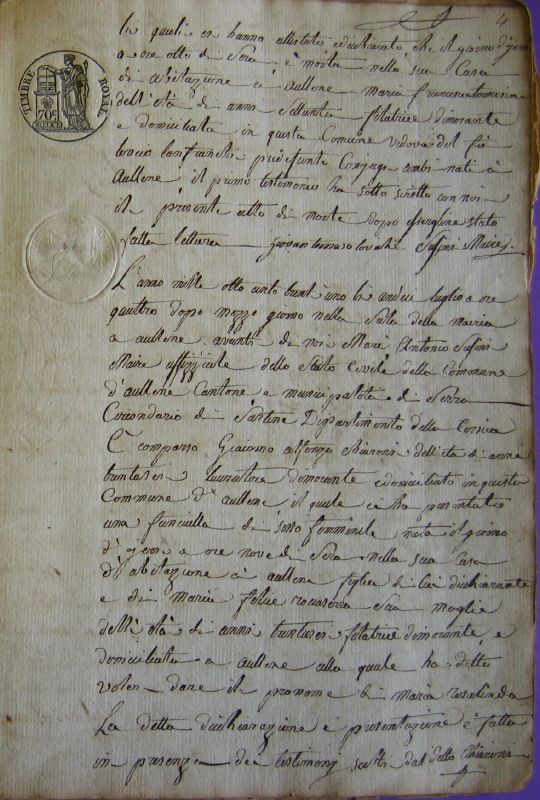 4
TIMBRE ROYAL
70c
li quali ci hanno attestato e dichiarato che il giorno d'jeri
a ore otto di sera è morta nella sua Casa
di abitazione a aullene Maria francesca
dell'età di anni settanta filatrice dimorante
e domiciliata in questa Comune vedova del fù
lanfranchi predefunto Conjuge ambi nati à
Aullene il primo testimonio ha sotto scritto con noi
il presente atto di morte dopo essergliene stato
fatta lettura Susini Maire
L'anno mille otto cento vent'uno li undici luglio a ore
quattro dopo mezzo giorno nella Sala della Maeria
a aullene avanti di noi Marc Antonio Susini
Maire uffizziale dello Stato Civile della Commune
d'aullene Cantone e municipalità di Serra
Circondario di Sartine Dipartimento della Corsica
è comparso Giacomo alfonzo Chiaroni dell'età di anni
trentasei lavoratore dimorante e domiciliato in questa
Commune d'aullene il quale ci ha presentato
una fanciulla di sesso femminile nata il giorno
d'jeri a ore nove di Sera nella sua Casa
d'abitazione à aullene figlia di lui dichiarante
e di Maria felice sua moglie
dell'età di anni trentasei filatrice dimorante e
domiciliata a aullene alla quale ha detto
voler dare il pronome di Maria
La detta dichiarazione e presentazione è fatta
in presenza dei testimonj scelti dal detto Chiaroni